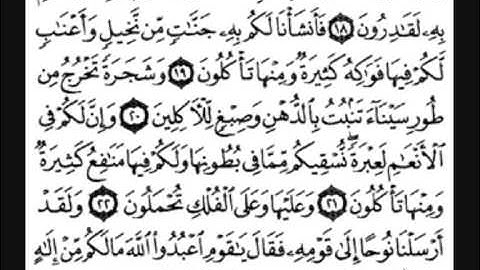 بِهِۦ لَقَٰدِرُونَ ١٨ فَأَنشَأْنَا لَكُم بِهِۦ جَنَّٰتٍ مِّن نَّخِيلٍ وَأَعْنَٰبٍ
لَّكُمْ فِيهَا فَوَٰكِهُ كَثِيرَةٌ وَمِنْهَا تَأْكُلُونَ ١٩ وَشَجَرَةً تَخْرُجُ مِن
طُورِ سَيْنَآءَ تَنۢبُتُ بِٱلدُّهْنِ وَصِبْغٍ لِّلْءَاكِلِينَ ٢٠ وَإِنَّ لَكُمْ فِى
ٱلْأَنْعَٰمِ لَعِبْرَةً ۖ نُّسْقِيكُم مِّمَّا فِى بُطُونِهَا وَلَكُمْ فِيهَا مَنَٰفِعُ كَثِيرَةٌ
وَمِنْهَا تَأْكُلُونَ ٢١ وَعَلَيْهَا وَعَلَى ٱلْفُلْكِ تُحْمَلُونَ ٢٢ وَلَقَدْ
أَرْسَلْنَا نُوحًا إِلَىٰ قَوْمِهِۦ فَقَالَ يَٰقَوْمِ ٱعْبُدُوا۟ ٱللَّهَ مَا لَكُم مِّنْ إِلَٰهٍ